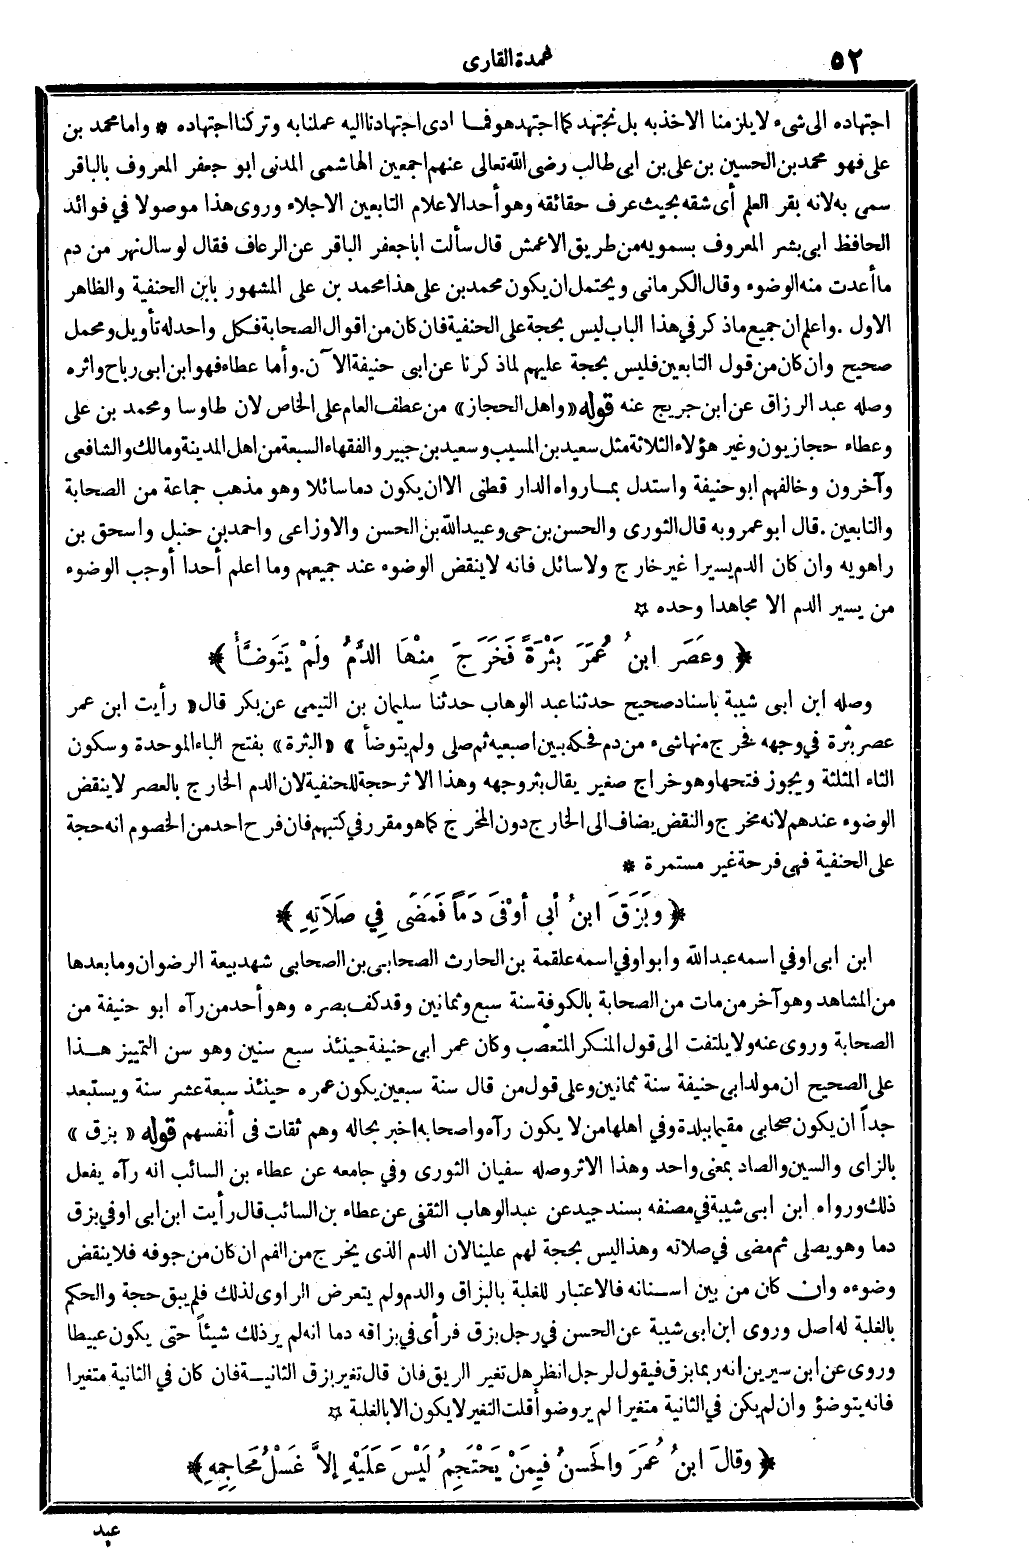 ٥٢
عمدة القارى
اجتهاده الى شىء لا يلزمنا الاخذ به بل نجتهد كما اجتهد هو فما ادى اجتهادنا اليه عملنا به وتركنا اجتهاده * واما محمد بن
على فهو محمد بن الحسين بن على بن ابى طالب رضى الله تعالى عنهم اجمعين الهاشمى المدنى ابو جعفر المعروف بالباقر
سمى به لانه بقر العلم أى شقه بحيث عرف حقائقه وهو أحد الاعلام التابعين الاجلاء وروى هذا موصولا في فوائد
الحافظ ابى بشر المعروف بسمويه من طريق الاعمش قال سألت ابا جعفر الباقر عن الرعاف فقال لو سال نهر من دم
ما أعدت منه الوضوء وقال الكرمانى ويحتمل ان يكون محمد بن على هذا محمد بن على المشهور بابن الحنفية والظاهر
الاول . واعلم ان جميع ما ذكر في هذا الباب ليس بحجة على الحنفية فان كان من اقوال الصحابة فكل واحد له تأويل ومحمل
صحيح وان كان من قول التابعين فليس بحجة عليهم لما ذكرنا عن ابى حنيفة الآن . وأما عطاء فهو ابن ابى رباح واثره
وصله عبد الرزاق عن ابن جريج عنه قوله «واهل الحجاز» من عطف العام على الخاص لان طاوسا ومحمد بن على
وعطاء حجازيون وغير هؤلاء الثلاثة مثل سعيد بن المسيب وسعيد بن جبير والفقهاء السبعة من اهل المدينة ومالك والشافعى
وآخرون وخالفهم ابو حنيفة واستدل بما رواه الدار قطنى الا ان يكون دما سائلا وهو مذهب جماعة من الصحابة
والتابعين . قال ابو عمر وبه قال الثورى والحسن بن حى وعبيد الله بن الحسن والاوزاعى واحمد بن حنبل واسحق بن
راهويه وان كان الدم يسيرا غير خارج ولا سائل فانه لا ينقض الوضوء عند جميعهم وما اعلم أحدا أوجب الوضوء
من يسير الدم الا مجاهدا وحده ✩
﴿ وعَصَر ابنُ عُمَرَ بَثْرَةً فَخَرَجَ مِنْهَا الدَّمُ ولَمْ يَتَوضَّأْ ﴾
وصله ابن ابى شيبة باسناد صحيح حدثنا عبد الوهاب حدثنا سليمان بن التيمى عن بكر قال «رأيت ابن عمر
عصر بثرة في وجهه فخرج منها شىء من دم فحكه بين اصبعيه ثم صلى ولم يتوضأ» «البثرة» بفتح الباء الموحدة وسكون
الثاء المثلثة ويجوز فتحها وهو خراج صغير يقال بثر وجهه وهذا الاثر حجة للحنفية لان الدم الخارج بالعصر لا ينقض
الوضوء عندهم لانه مخرج والنقض يضاف الى الخارج دون المخرج كما هو مقرر في كتبهم فان فرح احد من الخصوم انه حجة
على الحنفية فهى فرحة غير مستمرة *
﴿ وبَزَقَ ابنُ أبى أوْفَى دَمَاً فَمَضَى فِي صَلَاتِهِ ﴾
ابن ابى اوفي اسمه عبد الله وابو اوفي اسمه علقمة بن الحارث الصحابى بن الصحابى شهد بيعة الرضوان وما بعدها
من المشاهد وهو آخر من مات من الصحابة بالكوفة سنة سبع وثمانين وقد كف بصره وهو أحد من رآه ابو حنيفة من
الصحابة وروى عنه ولا يلتفت الى قول المنكر المتعصب وكان عمر ابى حنيفة حينئذ سبع سنين وهو سن التمييز هذا
على الصحيح ان مولد ابى حنيفة سنة ثمانين وعلى قول من قال سنة سبعين يكون عمره حينئذ سبعة عشر سنة ويستبعد
جداً ان يكون صحابى مقيما ببلدة وفي اهلها من لا يكون رآه واصحابه اخبر بحاله وهم ثقات فى أنفسهم قوله «بزق»
بالزاى والسين والصاد بمعنى واحد وهذا الاثر وصله سفيان الثورى وفي جامعه عن عطاء بن السائب انه رآه يفعل
ذلك ورواه ابن ابى شيبة في مصنفه بسند جيد عن عبد الوهاب الثقفى عن عطاء بن السائب قال رأيت ابن ابى اوفي بزق
دما وهو يصلى ثم مضى في صلاته وهذا ليس بحجة لهم علينا لان الدم الذى يخرج من الفم ان كان من جوفه فلا ينقض
وضوءه وان كان من بين اسنانه فالاعتبار للغلبة بالبزاق والدم ولم يتعرض الراوى لذلك فلم يبق حجة والحكم
بالغلبة له اصل وروى ابن ابى شيبة عن الحسن في رجل بزق فرأى في بزاقه دما انه لم ير ذلك شيئاً حتى يكون عبيطا
وروى عن ابن سيرين انه ربما بزق فيقول لرجل انظر هل تغير الريق فان قال تغير بزق الثانية فان كان في الثانية متغيرا
فانه يتوضؤ وان لم يكن في الثانية متغيرا لم ير وضوأ قلت التغير لا يكون الا بالغلبة ✩
﴿ وقالَ ابنُ عُمَرَ والحَسنُ فِيمَنْ يَحْتَجِمُ لَيْسَ عَلَيْهِ إلاَّ غَسْلُ مَحَاجِمِهِ ﴾
عبد